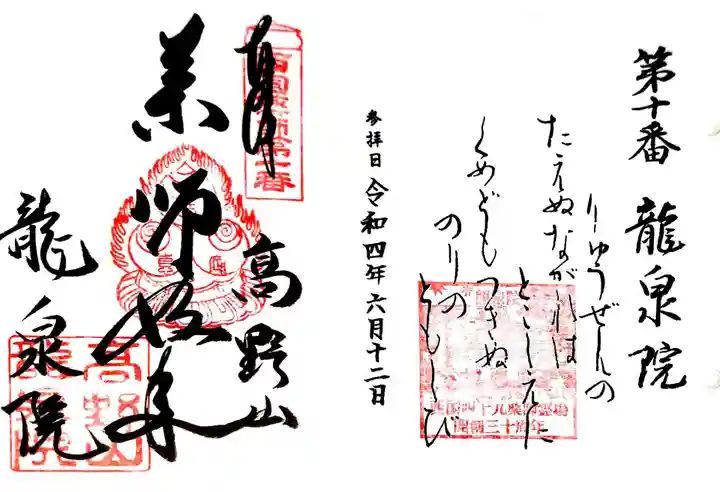 第十番 龍泉院
りゅうぜんの
たえぬながれは
とこしえに
くめどもつきぬ
のりの
ともしび
参拝日 令和四年六月十二日
西国四十九薬師霊場
開創三十周年
西国薬師第十番
奉拝
高野山
薬師如来
龍泉院